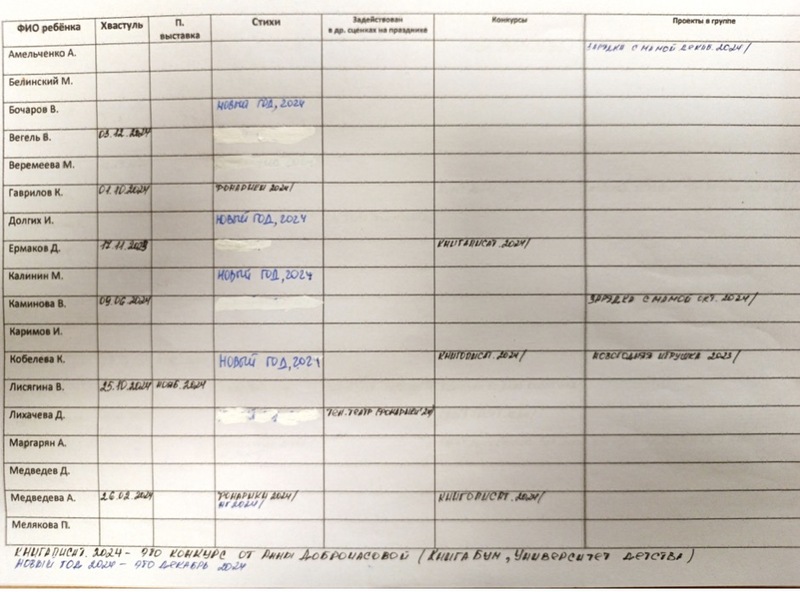 ФИО ребёнка Хвастуль П. выставка Стихи Задействован в др. сценках на празднике Конкурсы Проекты в группе
Амельченко А. ЗАРЯДКА С МАМОЙ ДЕКАБ. 2024/
Белинский М.
Бочаров В. НОВЫЙ ГОД, 2024
Вегель В. 03.12.2024
Веремеева М.
Гаврилов К. 01.10.2024 ФОНАРИКИ 2024/
Долгих И. НОВЫЙ ГОД, 2024
Ермаков Д. 17.11.2023 КНИГАПИСАТ. 2024/
Калинин М. НОВЫЙ ГОД, 2024
Каминова В. 09.06.2024 ЗАРЯДКА С МАМОЙ ОКТ. 2024/
Каримов И.
Кобелева К. НОВЫЙ ГОД, 2024 КНИГОПИСАТ. 2024/ НОВОГОДНЯЯ ИГРУШКА 2023/
Лисягина В. 25.10.2024 НОЯБ. 2024
Лихачева Д. ТЕН. ТЕАТР ФОНАРИКИ'24/
Маргарян А.
Медведев Д.
Медведева А. 26.02.2024 ФОНАРИКИ 2024/ КНИГОПИСАТ. 2024/
НГ 2024/
Мелякова П.
КНИГАПИСАТ. 2024 - ЭТО КОНКУРС ОТ АННЫ ДОБРОЧАСОВОЙ (КНИГА БУМ, УНИВЕРСИТЕТ ДЕТСТВА)
НОВЫЙ ГОД 2024 - ЭТО ДЕКАБРЬ 2024